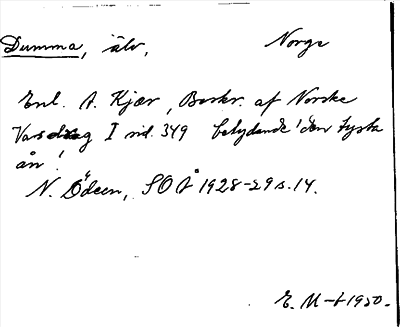 Dumma, älv, Norge
Enl. A. Kjær, Beskr. af Norske
Vasdrag I sid. 349 betydande 'den tysta
ån'.
N. Ödeen, SOÅ 1928-29 s. 14.
E. M-t 1950.